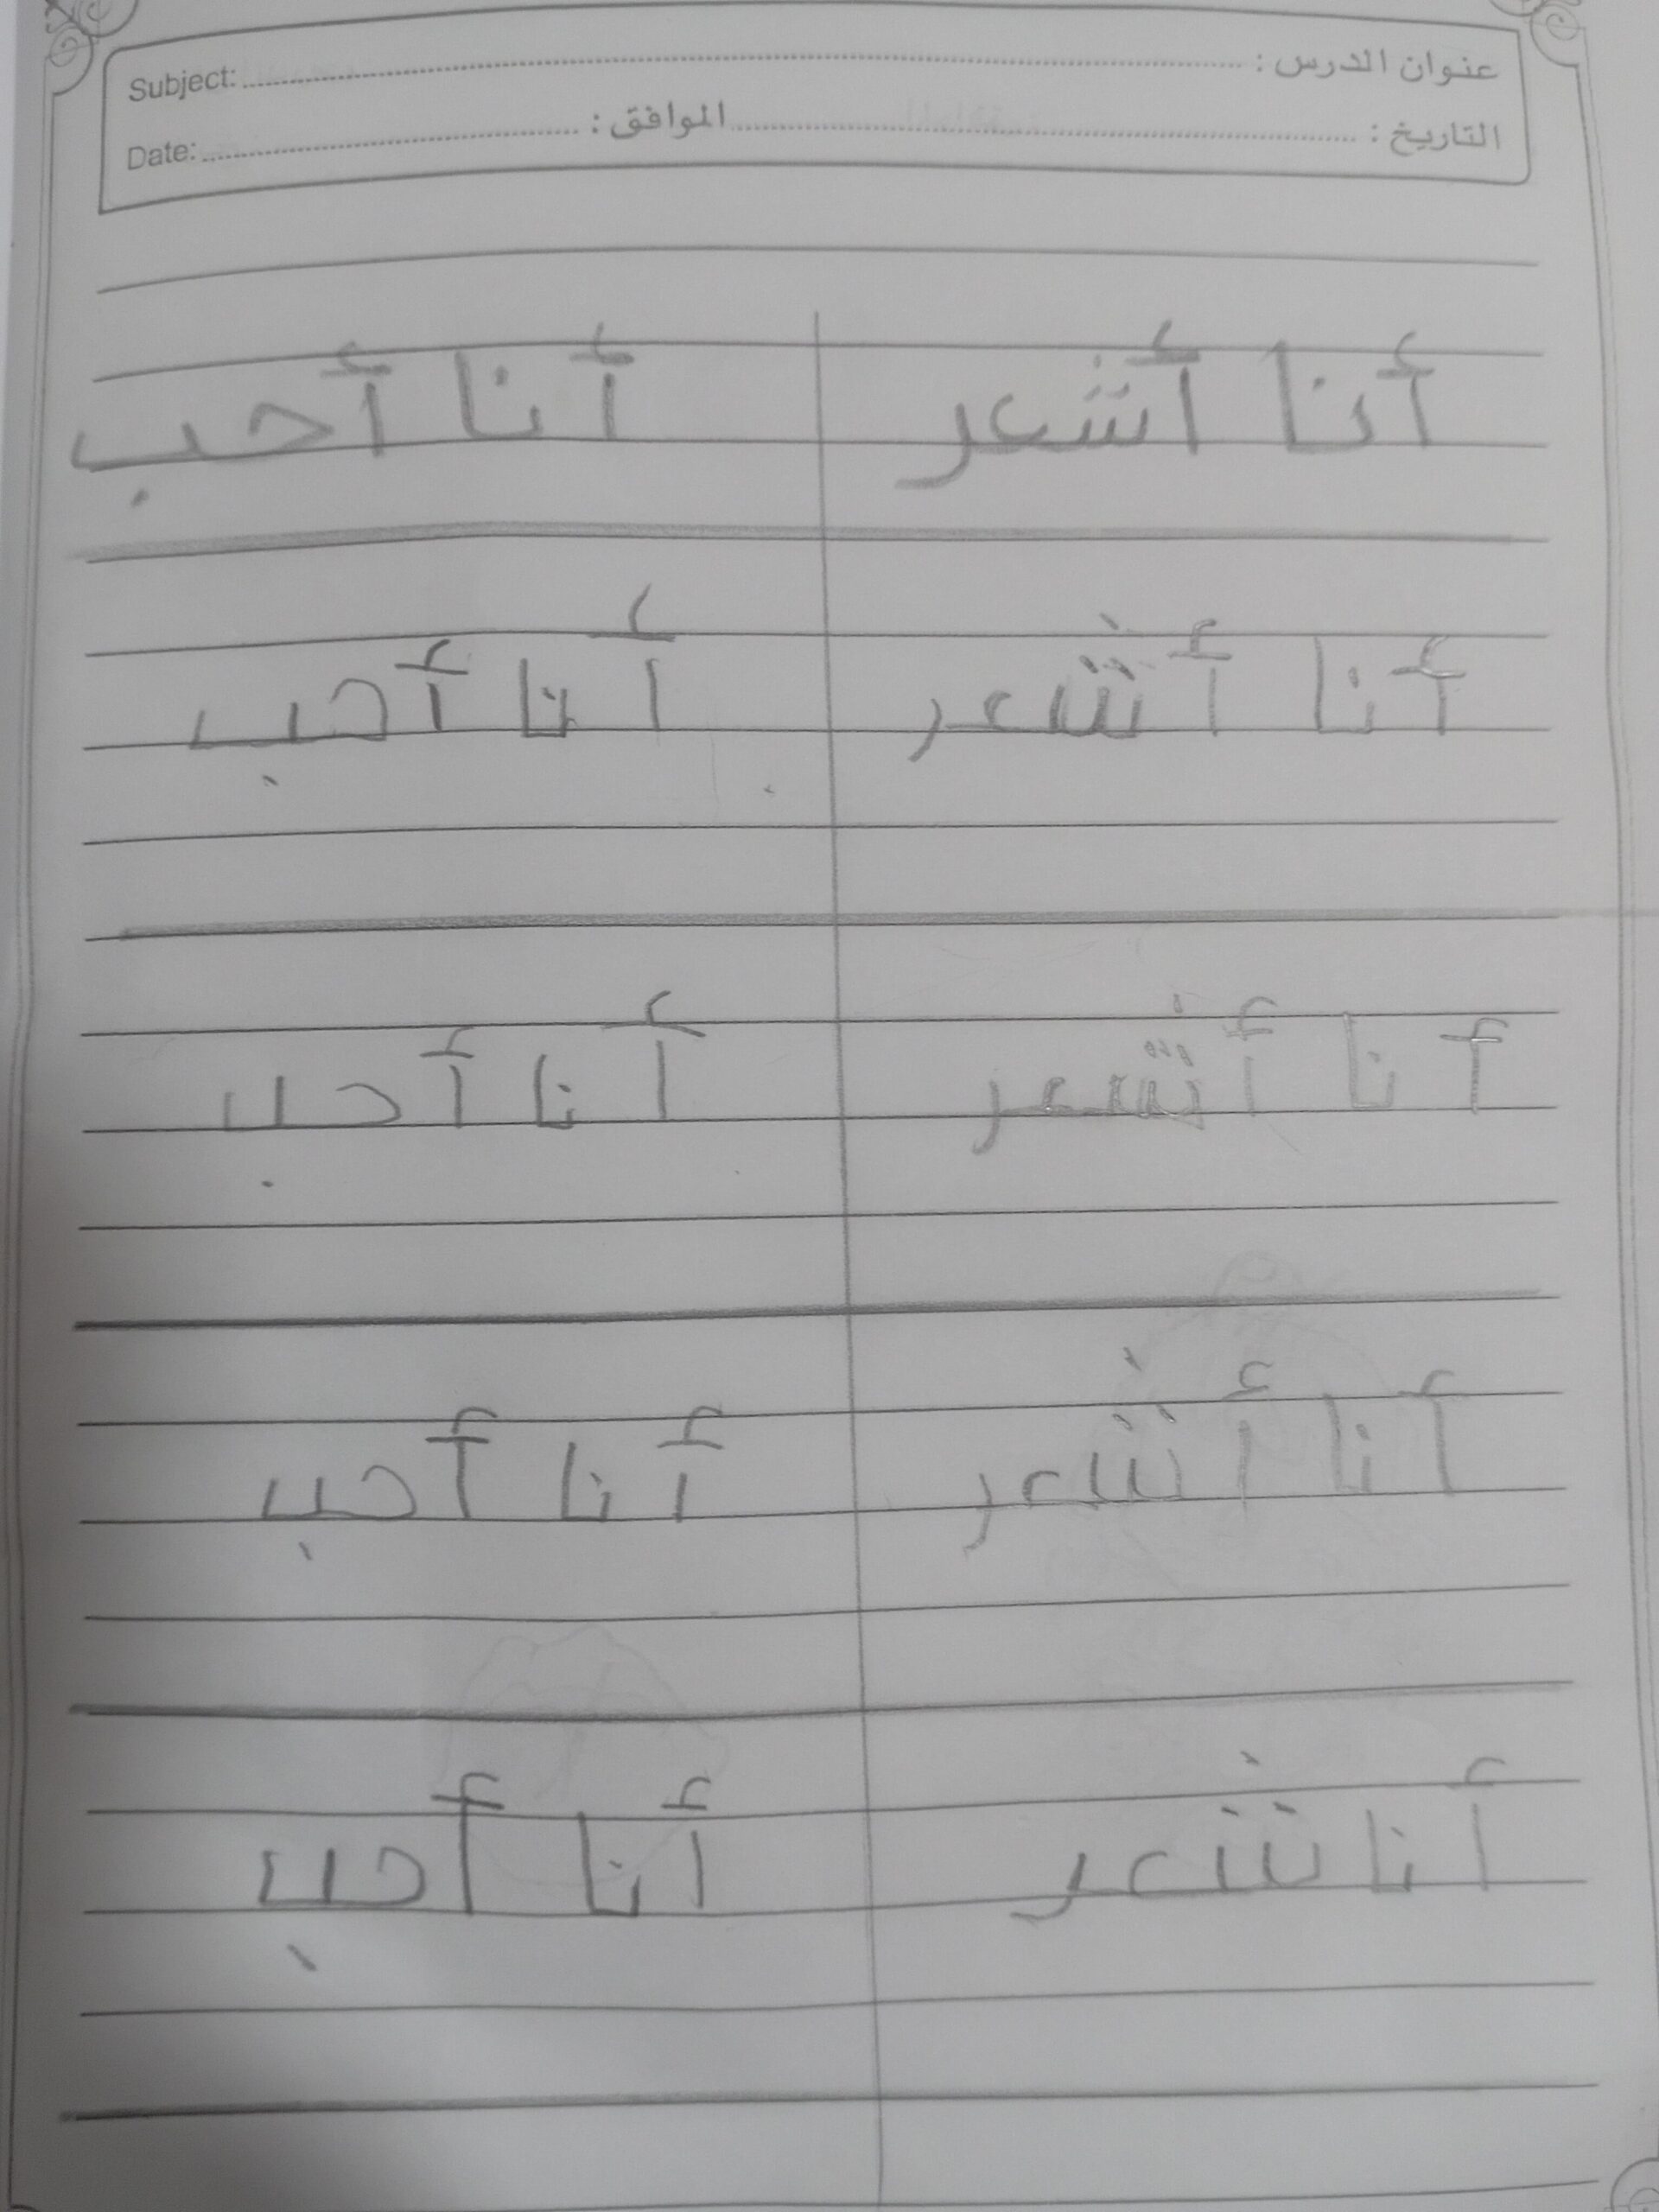 عنوان الدرس : Subject:
التاريخ : الموافق : Date:
أنا أشعر أنا أحب
أنا أشعر أنا أحب
أنا أشعر أنا أحب
أنا أشعر أنا أحب
أنا شعر أنا أحب